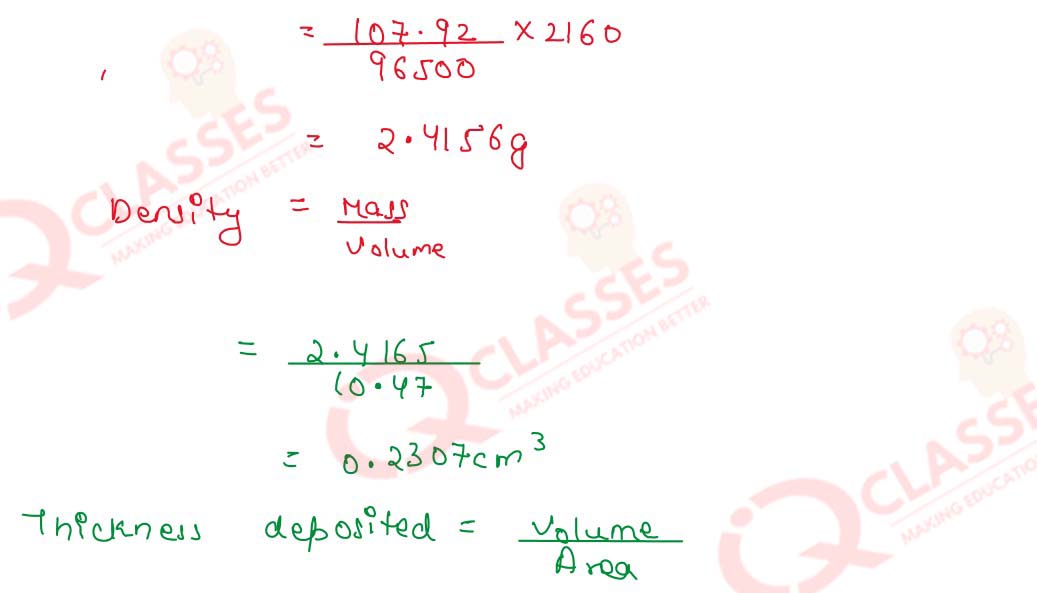 = 107.92 / 96500 × 2160
= 2.4156g
Density = Mass / Volume
= 2.4165 / 10.47
= 0.2307cm³
Thickness deposited = Volume / Area
iQ CLASSES
MAKING EDUCATION BETTER
iQ CLASSES
MAKING EDUCATION BETTER
iQ CLASSES
MAKING EDUCATION